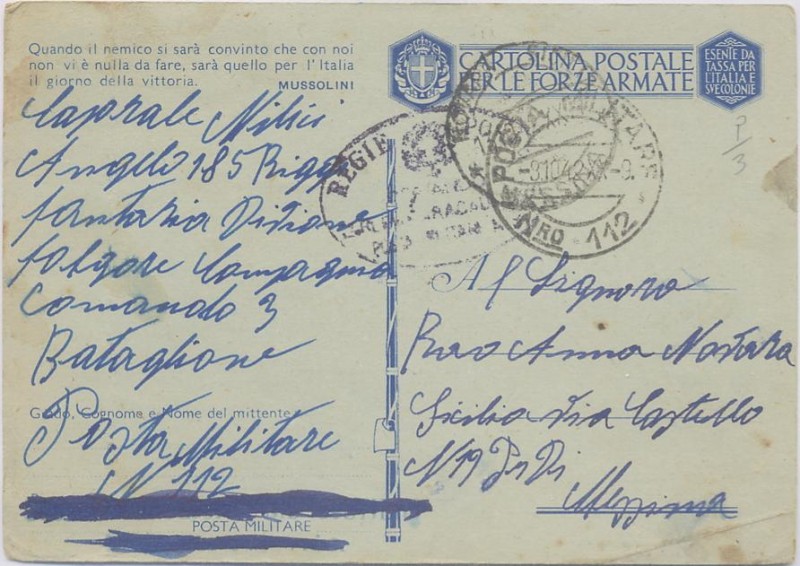 Quando il nemico si sarà convinto che con noi
non vi è nulla da fare, sarà quello per l'Italia
il giorno della vittoria. MUSSOLINI
CARTOLINA POSTALE
PER LE FORZE ARMATE
ESENTE DA
TASSA PER
L'ITALIA E
SVE COLONIE
P/3
REGIE
POSTA MILITARE
NRO 112
Caporale Milici
Angelo 185 Regg
fantaria Divisione
folgore Compagnia
Comando 3
Bataglione
Grado, Cognome e Nome del mittente
Posta Militare
N 112
POSTA MILITARE
Al Signora
Anna Nastara
Sicilia via Castello
N 19
Messima